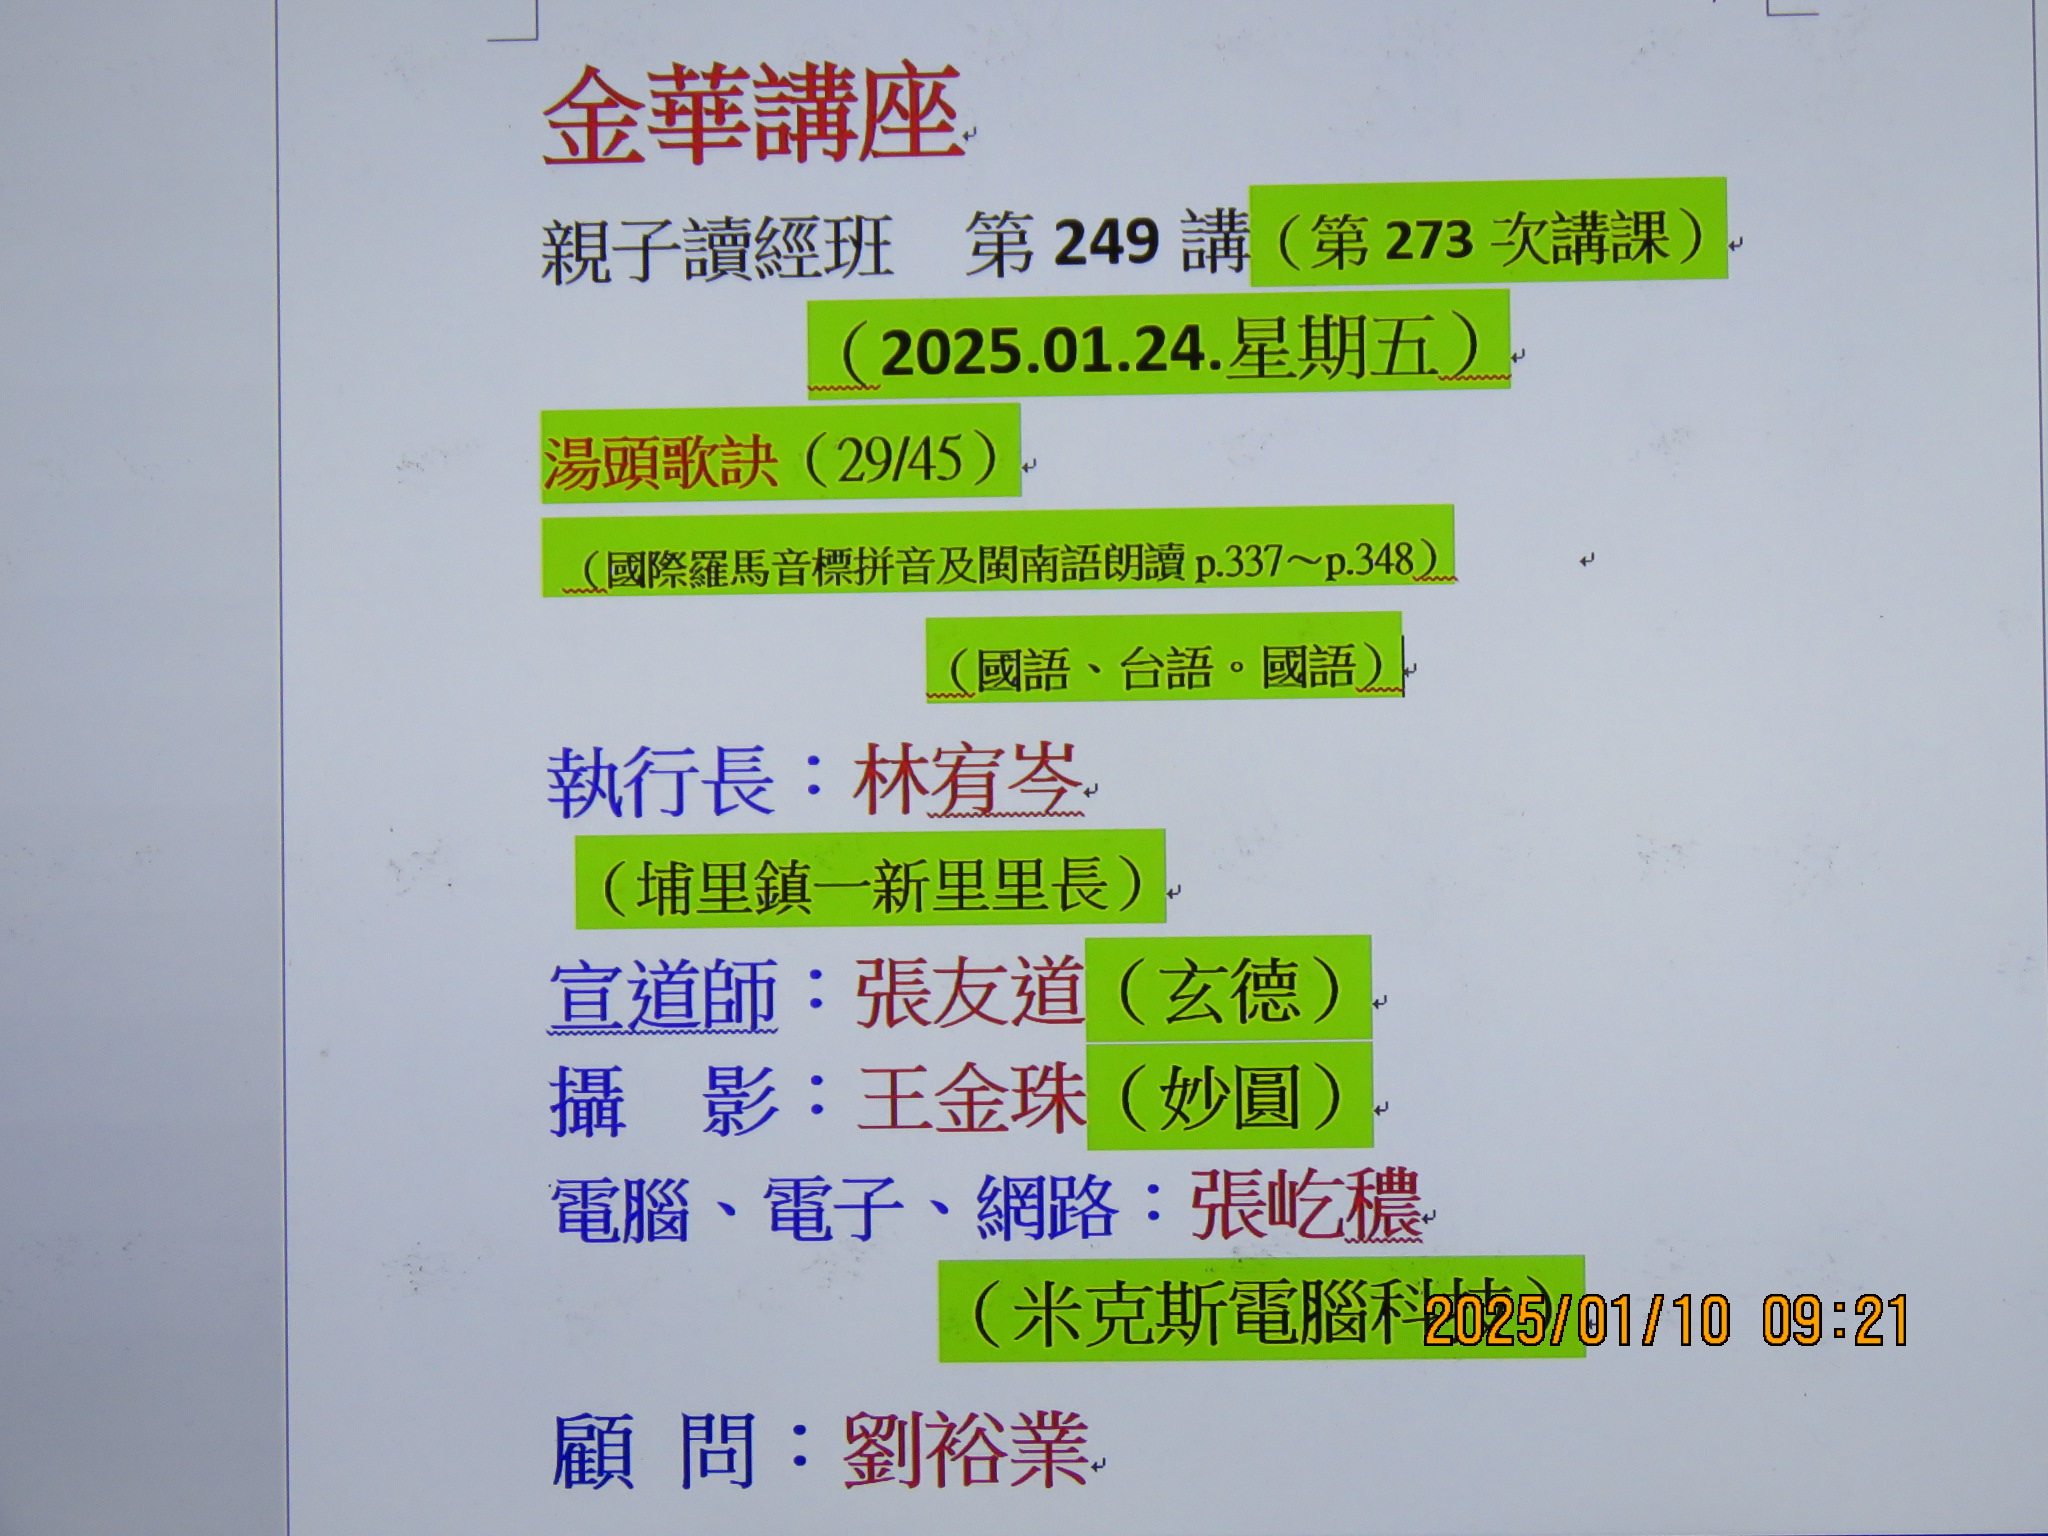 金華講座
親子讀經班　第 249 講（第 273 次講課）
（2025.01.24.星期五）
湯頭歌訣（29/45）
（國際羅馬音標拼音及閩南語朗讀 p.337～p.348）
（國語、台語。國語）
執行長：林宥岑
（埔里鎮一新里里長）
宣道師：張友道（玄德）
攝　影：王金珠（妙圓）
電腦、電子、網路：張屹穠
（米克斯電腦科技）
2025/01/10 09:21
顧 問：劉裕業